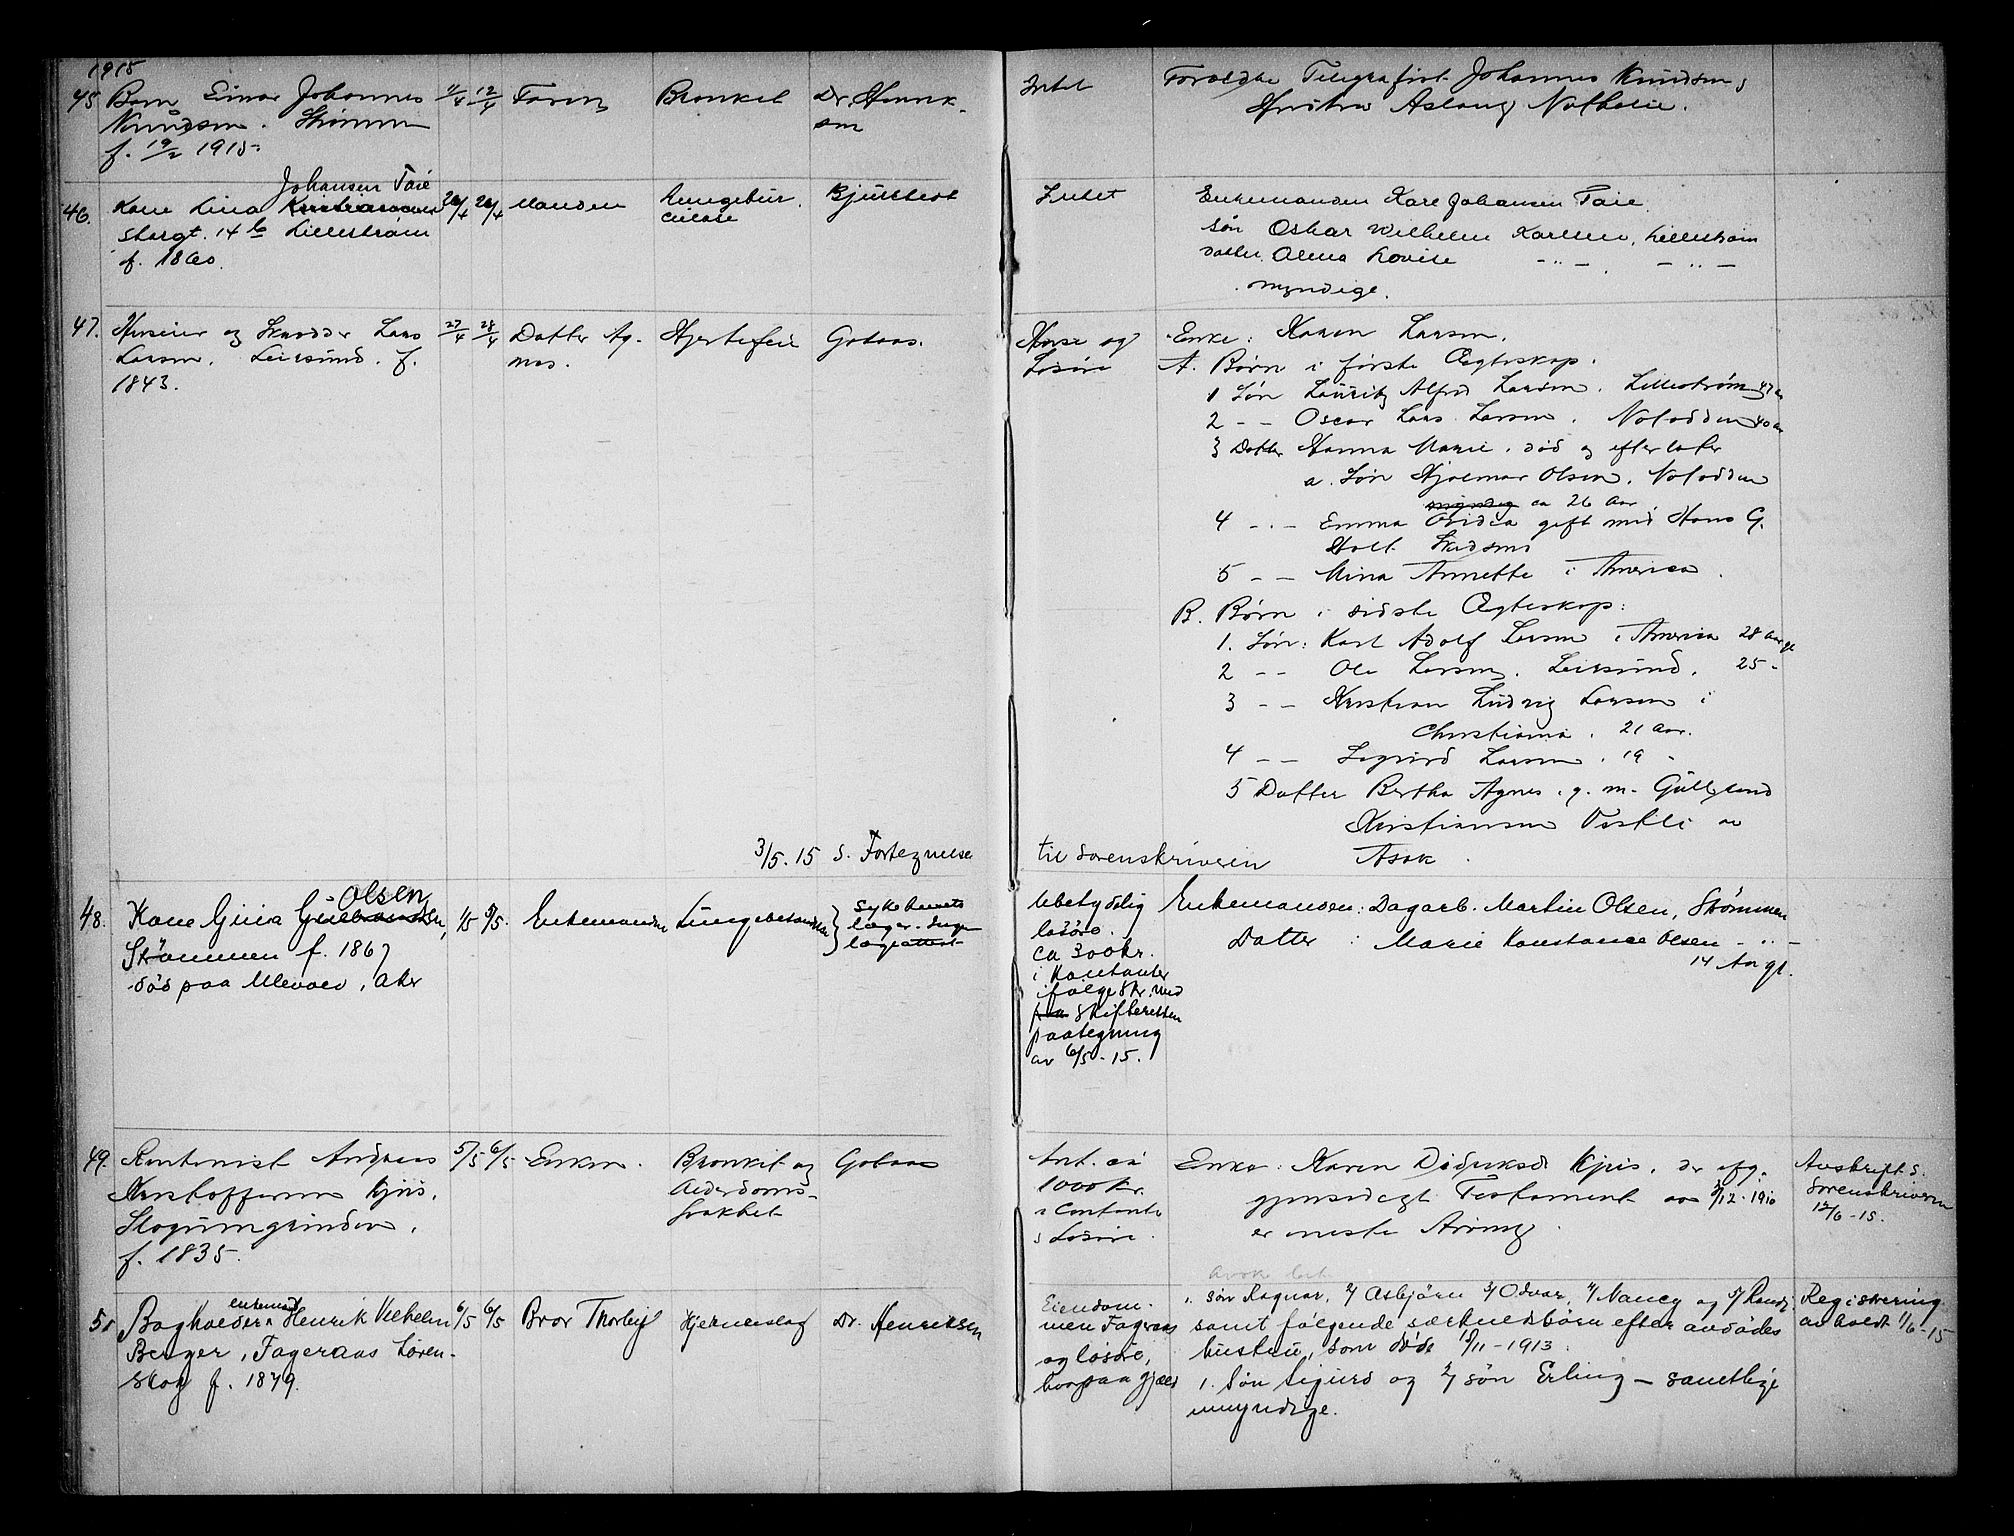 1915
45 Barn Einar Johannes 11/4 12/4 Faren Bronkit Dr. Henrik- Intet Forældre Telegrafist Johannes Knudsen og
Knudsen. Strømmen sen Hustru Aslaug Nathalie.
f. 19/2 1915
Johansen Taie
46. Kone Lina Kristiansen 26/4 26/4 Manden Bjülstedt Intet Enkemanden Karl Johansen Taie
Storgt. 14 b Lillestrøm søn Oskar Wilhelm Karlsen, Lillestrøm
f. 1860. datter Alma Lovise - " - - " -
myndige.
47. Huseier og Skrædder Lars 27/4 28/4 Datter Ag- Hjertefeil Gotaas. Huse og Enke: Karen Larsen.
Larsen. Leirsund. f. nes. Løsøre A. Børn i første Ægteskap.
1843. 1 Søn Lauritz Alfred Larsen. Lillestrøm
2 - - Oscar Lars Larsen. Notodden 40 aar
3 Datter Hanna Marie. død og efterlater
a. Søn Hjalmar Olsen. Notodden
myndig ca 26 Aar
4 - - Emma Ovidia gift med Hans G.
Holt Skedsmo
5 - - Mina Annette i America.
B. Børn i sidste Ægteskap:
1. Søn: Karl Adolf Larsen i America 28 aar gl
2 - - Ole Larsen. Leirsund. 25 -
3 - - Kristian Ludvig Larsen i
Christiania. 21 Aar.
4 - - Sigurd Larsen. 19 -
5 Datter Bertha Agnes. g. m. Gulbrand
Kristiansen Vestli av
3/5. 15 S. Fortegnelse til Sorenskriveren Asak.
- Olsen
48. Kone Gina Gulbrandsen, 1/5 5/5. Enkemanden Lungebetændelse Sykehusets Ubetydelig Enkemanden: Dagarb. Martin Olsen, Strømmen
Strømmen f. 1867 læger. Ingen løsøre. Datter : Marie Konstance Olsen - " -
død paa Ullevaal, Aker lægeattest ca 300 kr. 14 Aar gl.
i Kontanter
ifølge skr. med
fra Skifteretten
paategning
av 6/5 - 15.
49. Kontorist Andreas 5/5 6/5 Enken. Bronkit og Gotaas Ant. ca Enke: Karen Didriksd Kjus, der ifg. Avskrift s.
Kristoffersen Kjus, Alderdoms- 1000 Kr. gjensidigt Testament av 2/12 - 1910 Sorenskriveren
Skogumgrinden. svakhet i Contante er eneste Arving. 12/6 - 15.
f. 1835. & Løsøre.
enkemand
50 Bogholder Henrik Vilhelm 6/5 6/5 Bror Thorleif Hjerneslag Dr. Henriksen Eiendom- 1. søn Ragnar, 2/ Asbjørn 3/ Odvar, 4/ Nancy og 5/ Randi Registrering
Berger, Fageraas Løren- men Fageraas samt følgende særkulsbørn efter avdødes avholdt 1/6 - 15
skog f. 1879. og løsøre, hustru, som døde 10/11 - 1913.
hvorpaa gjæld 1. Søn Sigurd og 2/ søn Erling - samtlige
umyndige.